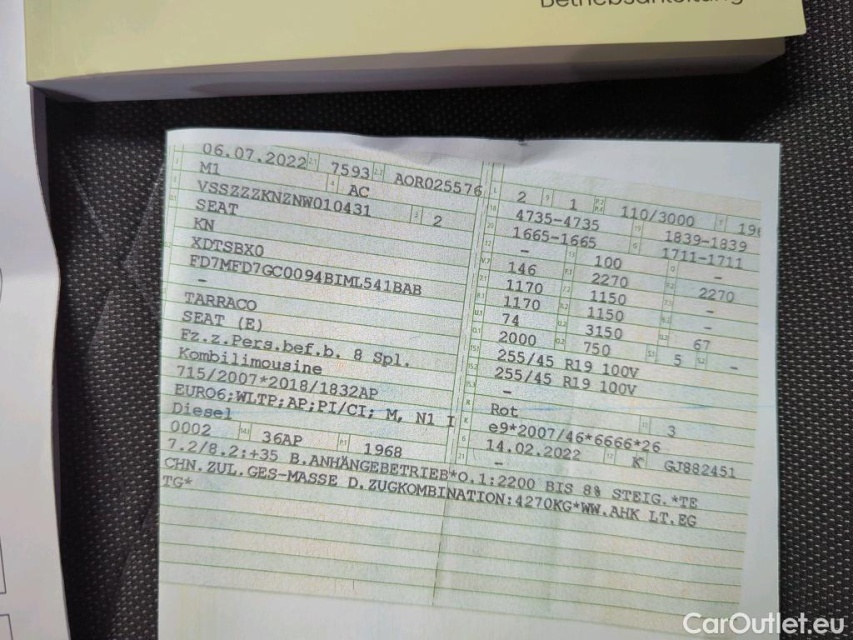 Betriebsanleitung
06.07.2022 7593 AOR025576 2 1 110/3000
M1 AC 4735-4735 1839-1839
VSSZZZKNZNW010431 2 1665-1665 1711-1711
SEAT - 100 -
KN 146 2270 2270
XDTSBX0 1170 1150
FD7MFD7GC0094BIML541BAB 1170 1150
- 74 3150 67
TARRACO 2000 750 5 -
SEAT (E) 255/45 R19 100V
Fz.z.Pers.bef.b. 8 Spl. 255/45 R19 100V
Kombilimousine -
715/2007*2018/1832AP Rot 3
EURO6;WLTP;AP;PI/CI; M, N1 I e9*2007/46*6666*26
Diesel 14.02.2022 K GJ882451
0002 36AP 1968 -
7.2/8.2:+35 B.ANHÄNGEBETRIEB*O.1:2200 BIS 8% STEIG.*TE
CHN.ZUL.GES-MASSE D.ZUGKOMBINATION:4270KG*WW.AHK LT.EG
TG*
CarOutlet.eu